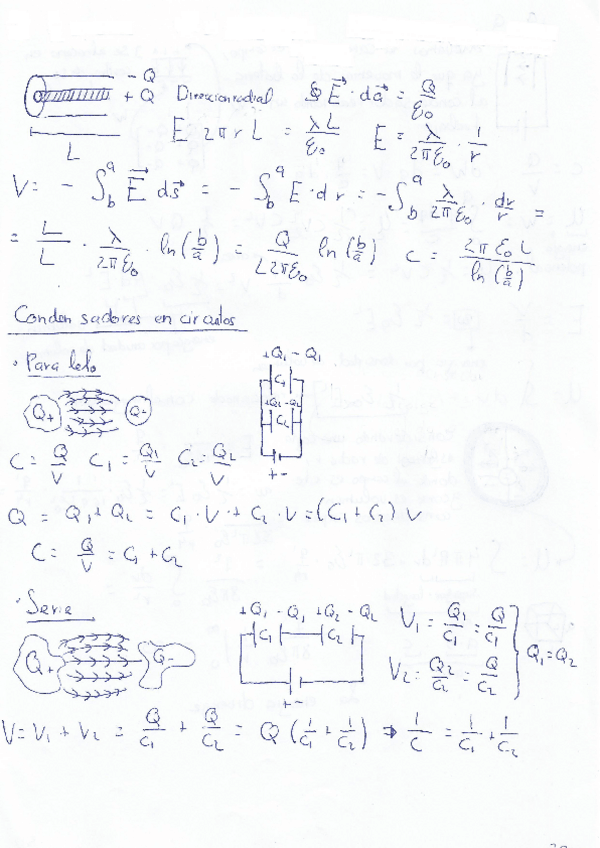 - Q
+ Q Direccion radial ∮ E⃗ · da⃗ = Q/ε₀
L E 2πrL = λL/ε₀ E = λ/2πε₀ · 1/r
V = - ∫_b^a E⃗ ds⃗ = - ∫_b^a E · dr = - ∫_b^a λ/2πε₀ · dr/r =
= L/L · λ/2πε₀ · ln(b/a) = Q/L2πε₀ ln(b/a) C = 2πε₀L/ln(b/a)
Condensadores en circuitos
· Paralelo
+Q₁ - Q₁
C₁
+Q₂ -Q₂
C₂
+ -
Q+ Q-
C = Q/V C₁ = Q₁/V C₂ = Q₂/V
Q = Q₁ + Q₂ = C₁ · V + C₂ · V = (C₁ + C₂) V
C = Q/V = C₁ + C₂
· Serie
+Q₁ - Q₁ +Q₂ - Q₂
C₁ C₂
+ -
Q+ Q-
V₁ = Q₁/C₁ = Q/C₁
V₂ = Q₂/C₂ = Q/C₂ } Q₁ = Q₂
V = V₁ + V₂ = Q/C₁ + Q/C₂ = Q (1/C₁ + 1/C₂) → 1/C = 1/C₁ + 1/C₂